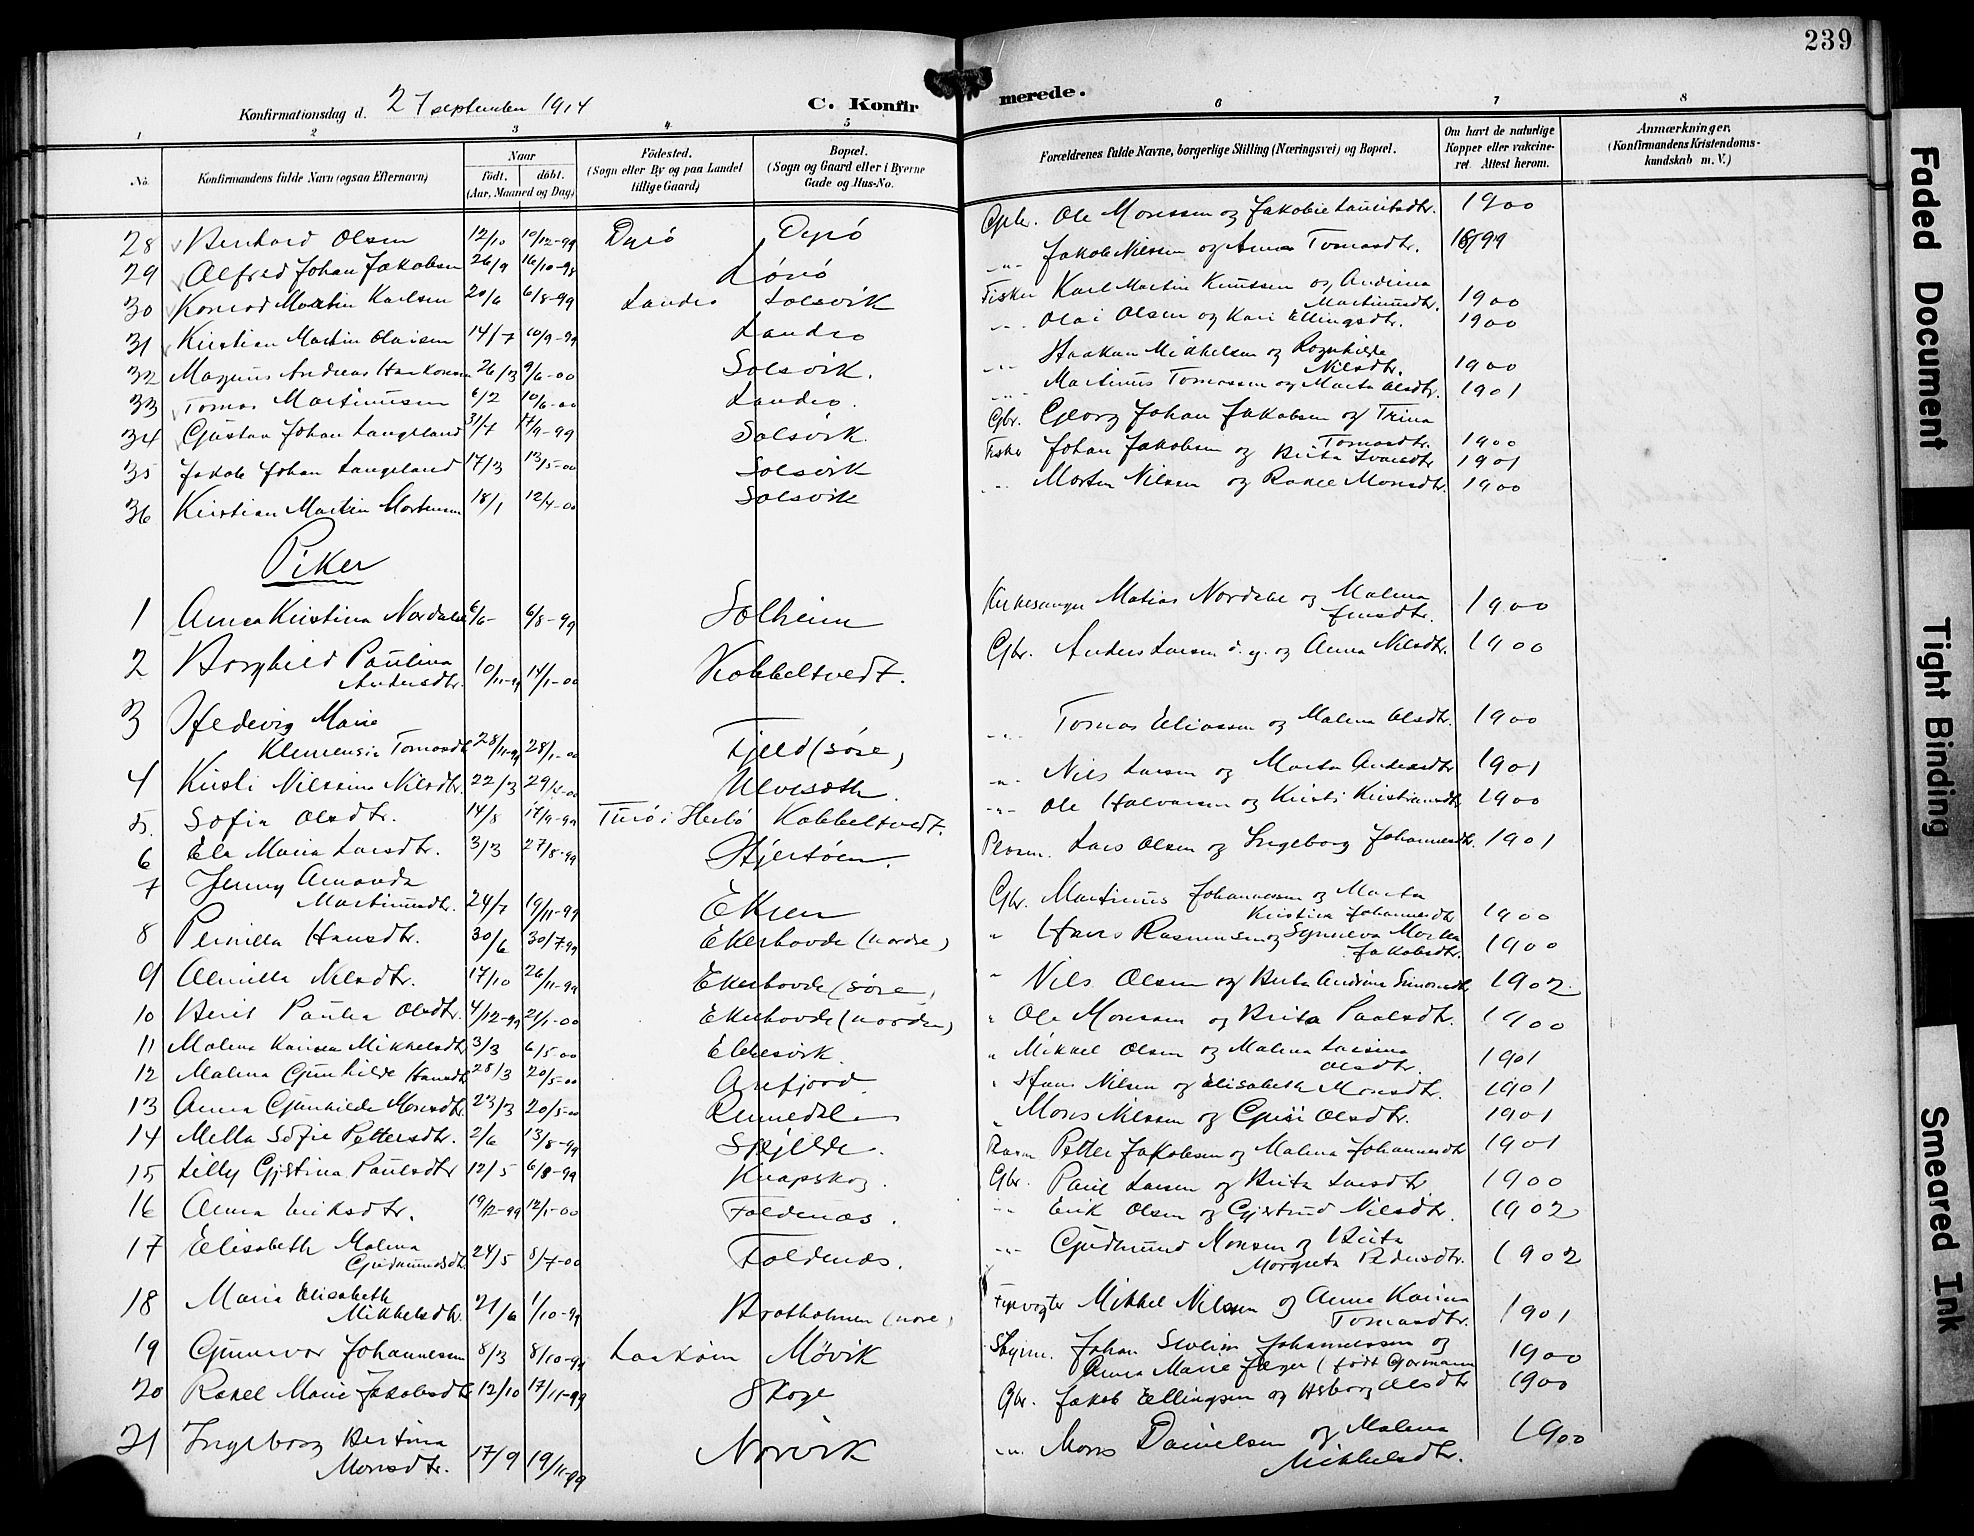 239
Konfirmationsdag d. 27 september 1914
C. Konfirmerede.
1 2 3 4 5 6 7 8
No. Konfirmandens fulde Navn (ogsaa Efternavn) Naar født. døbt. (Aar, Maaned og Dag) Fødested. (Sogn eller By og paa Landet tillige Gaard) Bopæl. (Sogn og Gaard eller i Byerne Gade og Hus-No. Forældrenes fulde Navne, borgerlige Stilling (Næringsvei) og Bopæl. Om havt de naturlige Kopper eller vakcineret. Attest herom. Anmærkninger. (Konfirmandens Kristendomskundskab m. V.)
28 Bernhard Olsen 12/10 10/12-99 Dyrö Dyrö Gbr. Ole Monssen og Jakobie Lauritsdtr. 1900
29 Alfred Johan Jakobsen 26/9 16/10-98 Lönö -"- Jakob Nilssen og Anna Tomasdtr. 1899
30 Konrad Martin Karlsen 20/6 6/8-99 Landro Solsvik Fisker Karl Martin Knutsen og Andrina Martinusdtr. 1900
31 Kristian Martin Olaisen 14/7 10/9-99 Landro -"- Olai Olsen og Kari Ellingsdtr. 1900
32 Magnus Andreas Haakonsen 26/3 9/6-00 Solsvik. -"- Haakon Mikkelsen og Ragnhilde Nilsdtr. 1900
33 Tomas Martinusen 6/2 10/6-00 Landro. -"- Martinus Tomassen og Marta Olsdtr. 1901
34 Gustav Johan Langeland 31/7 17/9-99 Solsvik. Gbr. Georg Johan Jakobsen og Trina Tomasdtr. 1900
35 Jakob Johan Langeland 17/3 13/5-00 Solsvik Fisker Johan Jakobsen og Brita Ivarsdtr 1901
36 Kristian Martin Mortensen 18/1 12/4-00 Solsvik -"- Morten Nilsen og Rakel Monsdtr. 1900
Piker
1 Anna Kristina Nordahl 6/6- 6/8-99 Solheim Kirkesanger Matias Nordahl og Malena 1900
2 Borghild Paulina Andersdtr. 10/11-99 14/1-00 Kobbeltvedt. Gbr. Anders Larsen d. y. og Anna Nilsdtr. 1900
3 Hedevig Marie Klemensia Tomasdtr 28/11-99 28/1-00 Fjeld (söre) -"- Tomas Eliassen og Malena Olsdtr. 1900
4 Kristi Nilsina Nilsdtr. 22/3 Ulveseth. -"- Nils Larsen og Marta Andersdtr 1901
5. Sofia Olsdtr. 14/8 17/9-99 Turö i Herlö Kobbeltvedt. -"- Ole Halvorsen og Kristi Kristiansdtr 1900
6 Ela Maria Larsdtr. 3/3 27/8-99 Stjertöen. Lars Olsen og Ingeborg Johannesdtr. 1901
7 Jenny Amanda Martinusdtr. 24/7 19/11-99 Ekren Gbr. Martinus Johannesen og Marta Kristina Johannesdtr 1900
8 Pernilla Hansdtr. 30/6 30/7-99 Ekerhovde (nordre) " Hans Rasmussen og Synneva Marta Jakobsdtr. 1900
9 Almilla Nilsdtr. 17/10 26/11-99 Ekerhovde (söre) " Nils Olsen og Brita Andrina Simonsdtr 1902
10 Berit Paulea Olsdtr. 4/12-99 21/1-00 Ekerhovde (nordre) " Ole Monssen og Brita Paalsdtr. 1900
11 Malena Karina Mikkelsdtr 3/3 6/5-00 Ebbesvik. " Mikkel Olsen og Malena Larsina Olsdtr. 1901
12 Malena Gunhilde Hansdtr 28/3 20/5-00 Arefjord " Hans Nilsen og Elisabeth Monsdtr. 1901
13 Anna Gunhilda Monsdtr. 23/3 20/5-00 " Mons Nilssen og Guri Olsdtr. 1901
14 Mella Sofie Pettersdtr. 2/6 13/8-99 Skjelde. Petter Jakobsen og Malena Johannesdtr 1901
15 Lilly Gjertina Paulsdtr 12/5 6/8-99 Knapskog. Gbr. Paul Larsen og Brita Larsdtr 1900
16 Anna Eriksdtr. 19/12-99 12/1-00 Foldenæs. -"- Erik Olsen og Gjertrud Nilsdtr. 1902
17 Elisabeth Malena Gudmundsdtr. 24/5 8/7-00 Foldenæs. -"- Gudmund Monsen og Brita Margreta Pedersdtr. 1902
18 Maria Elisabeth Mikkelsdtr. 21/6 1/10-99 Bratholmen (nore) Fyrvogter Mikkel Nilsen og Anna Karina Tomasdtr. 1901
19 Gunnvor Johannessen 8/3 8/10-99 Laxkoim Møvik Styrm. Johan Johannessen og Anna Marie Jæger (født Gormann 1900
20 Rakel Marie Jakobsdtr 12/10 17/11-99 Skoge Gbr. Jakob Ellingsen og Olsdtr 1900
21 Ingeborg Bertina Monsdtr. 17/9 19/11-99 Norvik -"- Mons Danielsen og Malena Mikkelsdtr. 1900
Faded Document
Tight Binding
Smeared Ink